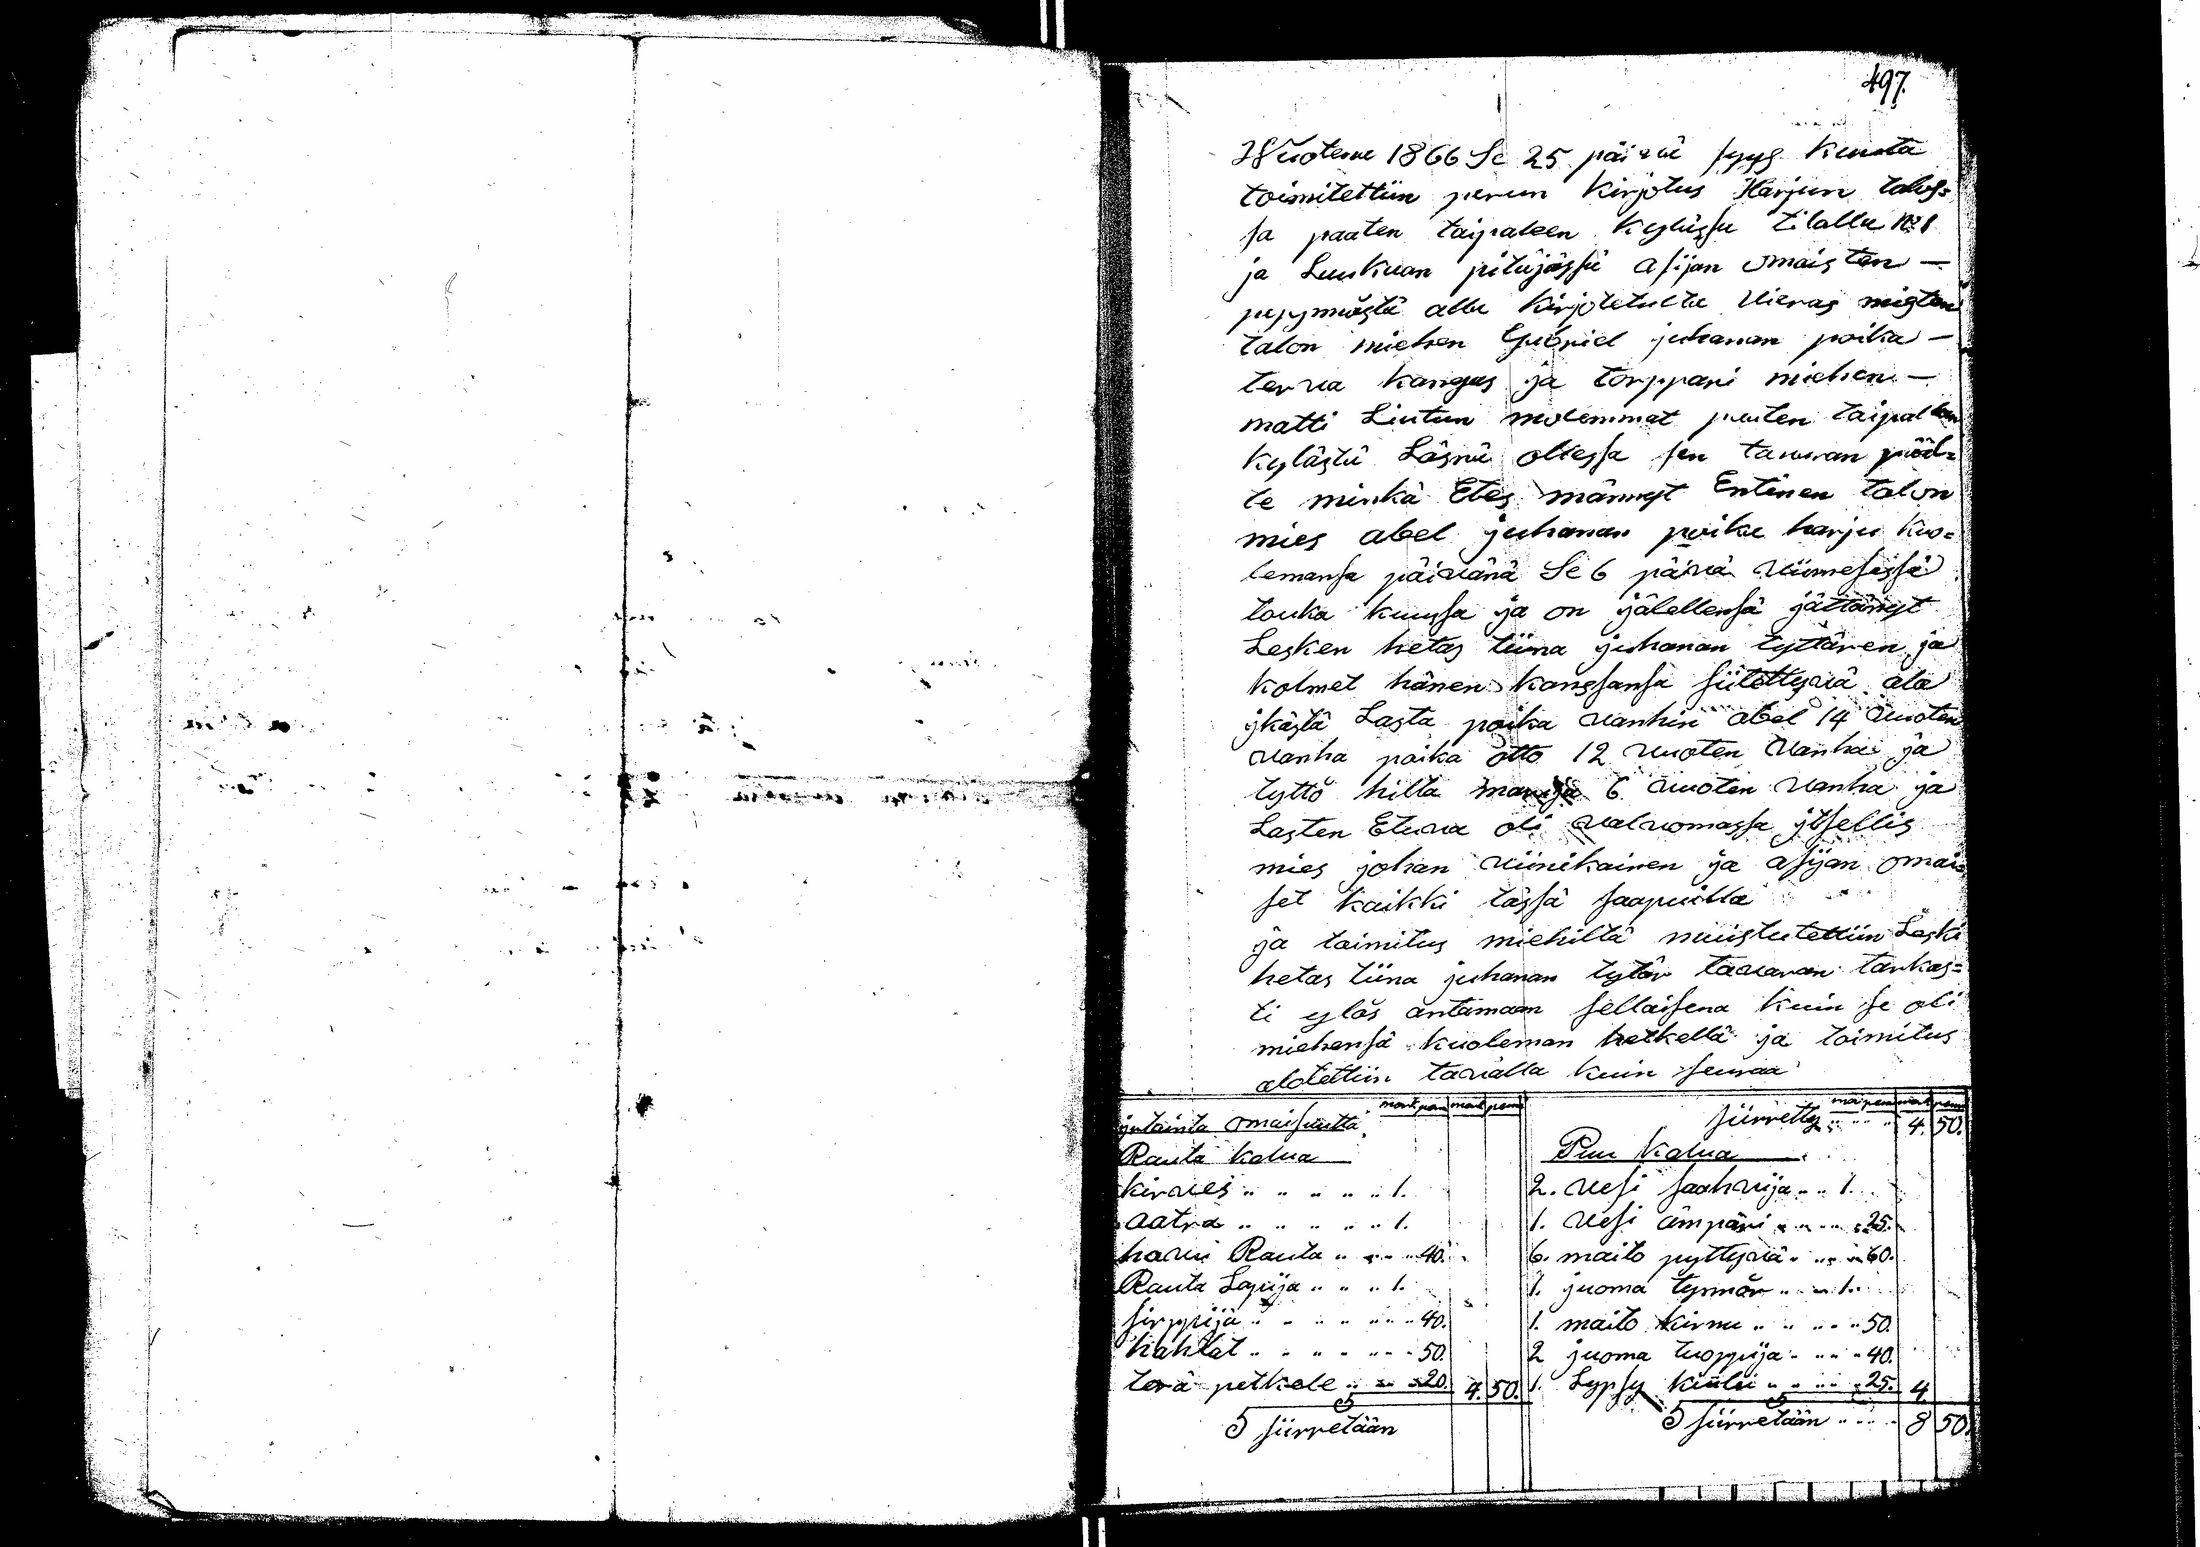 497.
Wuotena 1866 Se 25 päivä syys kuuta
toimitettiin perun kirjotus Harjun talos=
sa paaten taipaleen kylässä tilalla N:o 1
ja Luukuan pitäjässä asijan omaisten —
pyynnöstä alla kirjotetulta Vieras misten
talon miehen Gabriel juhanan poika —
terva kangas ja torppari miehen —
matti Lintun molemmat paaten taipalleen
kylästä Läsnä ollessa sen tavaran pääl=
le minkä Etes männyt Entinen talon
mies abel juhanan poika harju kuo=
lemansa päivänä Se 6 päivä viimesissä
touka kuussa ja on jälellensä jättänyt
Lesken hetas tiina juhanan tyttären ja
kolmet hänen kanssansa siitettyvä ala
jkästä Lasta poika vanhin abel 14 vuoten
vanha poika otto 12 vuoten vanha ja
tyttö hilta marija 6 vuoten vanha ja
Lasten Etuva oli valvomassa jtsellis
mies johan viinikainen ja asijan omai=
set kaikki tässä saapuilla
ja toimitus miehiltä muistutettiin Leski
hetas tiina juhanan tytär tavaran tarkas=
ti ylös antamaan sellaisena kuin se oli
miehensä kuoleman hetkellä ja toimitus
alotettiin tavalla kuin seuraa
jrtainta omaisuutta mark pen mark penni
Rauta kalua
kirves " " " " " 1.
aatra " " " " " 1.
harvi Rauta " " " " 40.
Rauta Lapija " " " 1.
sirppija " " " " " " 40.
hahlat " " " " " " 50.
terä petkele " " " 20. 4. 50.
S siirretään
mar pen mark penni
siirretty " " " 4. 50.
Puu kalua
2. vesi saahvija " " 1.
1. vesi ämpäri " " " " 25.
6. maito pyttyvä " " " 60.
1. juoma tynnör " " " 1.
1. maito kirnu " " " " " 50.
2 juoma tuoppija " " " 40.
1. Lypsy kiulu " " " " 25. 4
S siirretään " " " " 8 50.